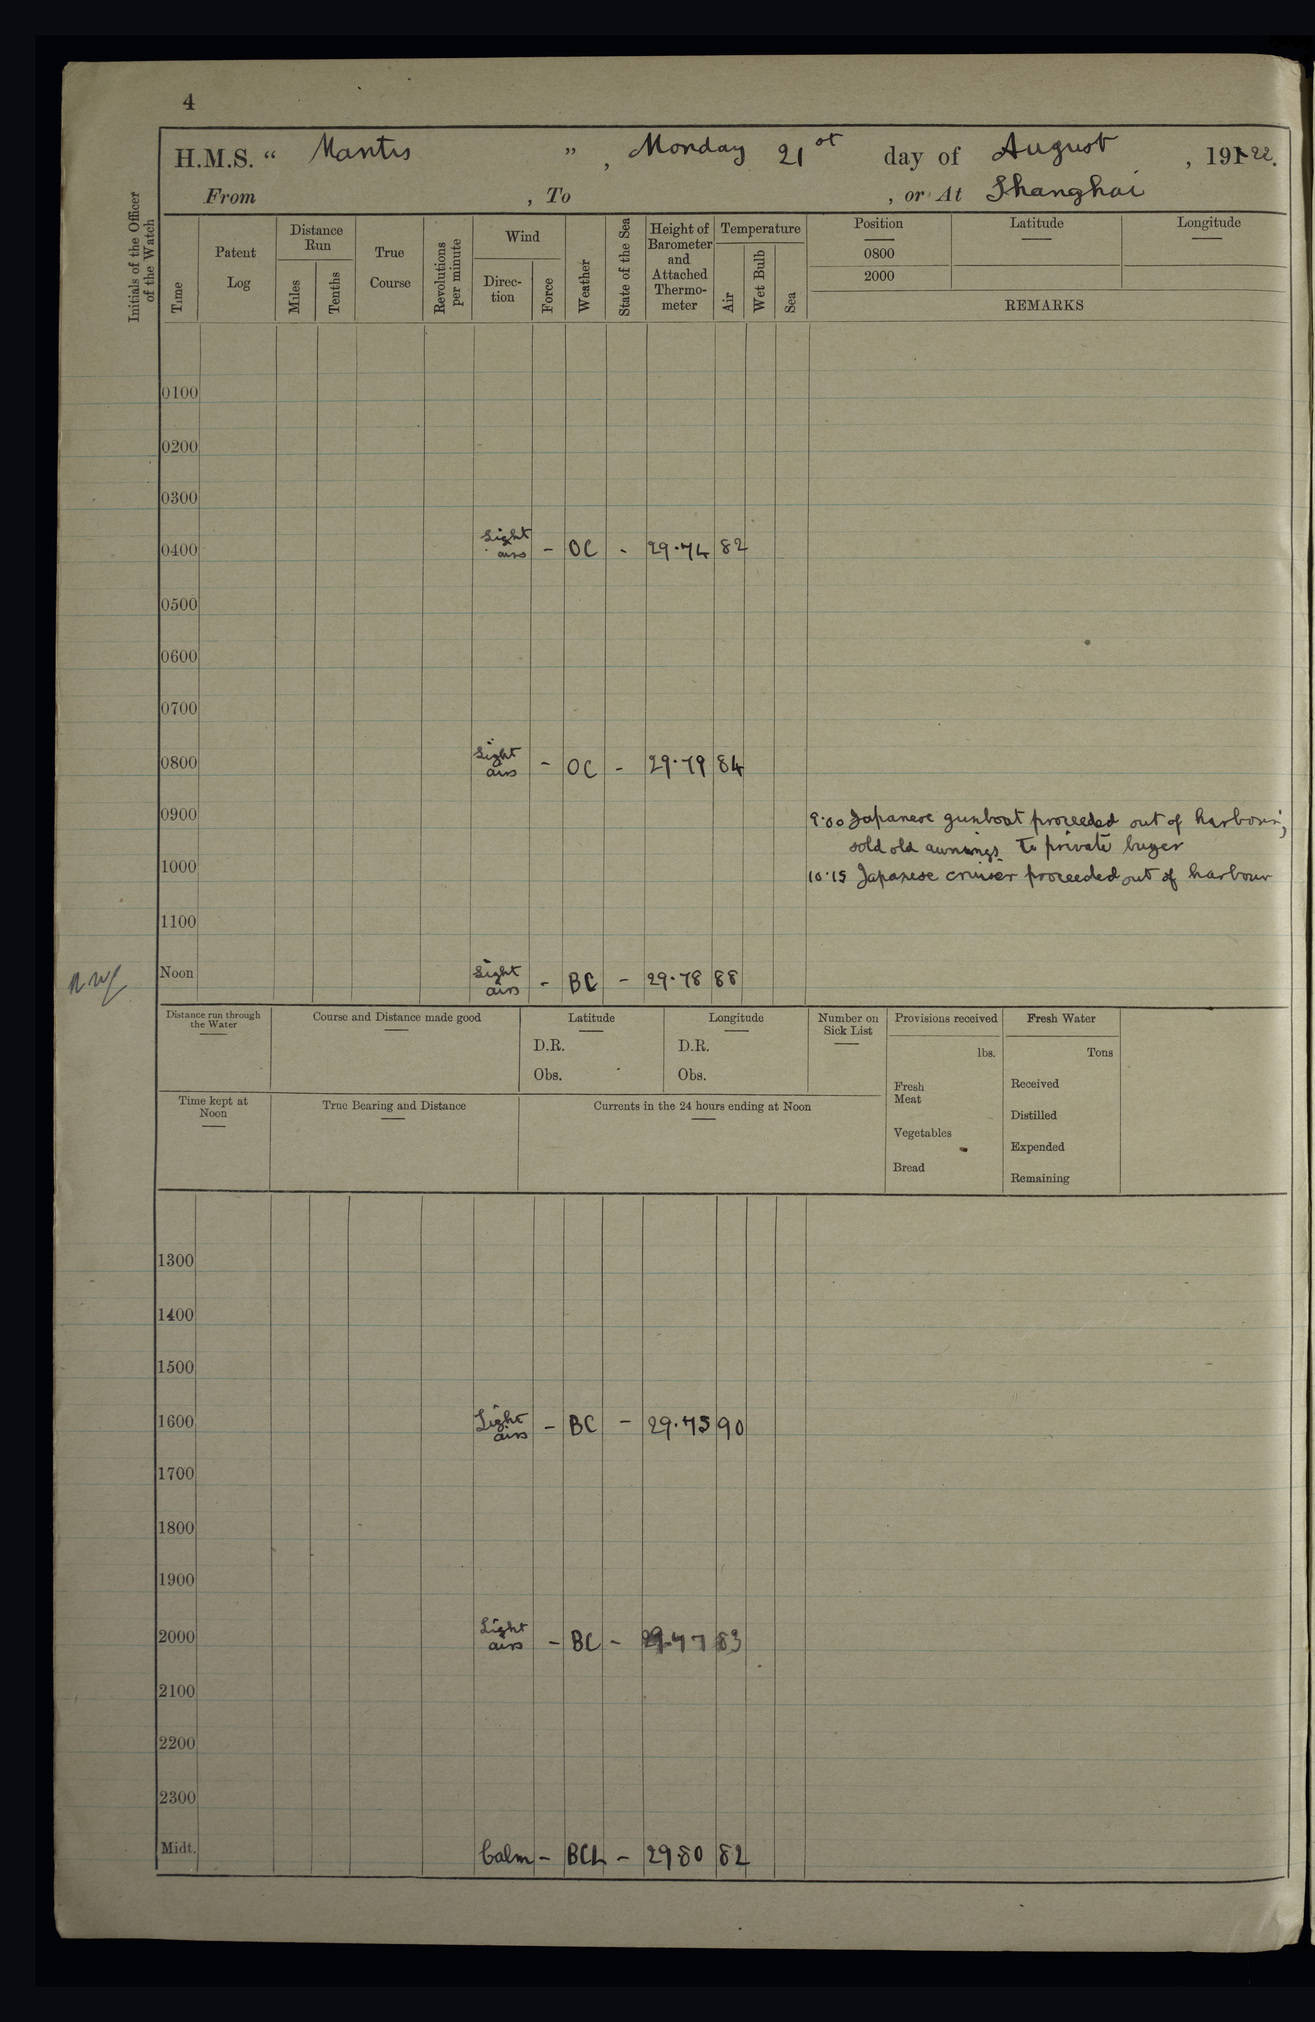 4
H.M.S. “ Mantis ” , Monday 21st day of August , 191 22.
From , To , or At Shanghai
Initials of the Officer of the Watch
Time
Patent Log
Distance Run
Miles
Tenths
True Course
Revolutions per minute
Wind
Direction
Force
Weather
State of the Sea
Height of Barometer and Attached Thermometer
Temperature
Air
Wet Bulb
Sea
Position
Latitude
Longitude
0800
2000
REMARKS
0100
0200
0300
0400 Light airs - OC - 29.74 82
0500
0600
0700
0800 Light airs - OC - 29.79 84
0900 9.00 Japanese gunboat proceeded out of harbour;
sold old awnings to private buyer
1000 10.15 Japanese cruiser proceeded out of harbour
1100
Noon Light airs - BC - 29.78 88
Distance run through the Water
Course and Distance made good
Latitude
D.R.
Obs.
Longitude
D.R.
Obs.
Number on Sick List
Provisions received
lbs.
Fresh Meat
Vegetables
Bread
Fresh Water
Tons
Received
Distilled
Expended
Remaining
Time kept at Noon
True Bearing and Distance
Currents in the 24 hours ending at Noon
1300
1400
1500
1600 Light airs - BC - 29.75 90
1700
1800
1900
2000 Light airs - BC - 83
2100
2200
2300
Midt. Calm - BCL - 29.80 82